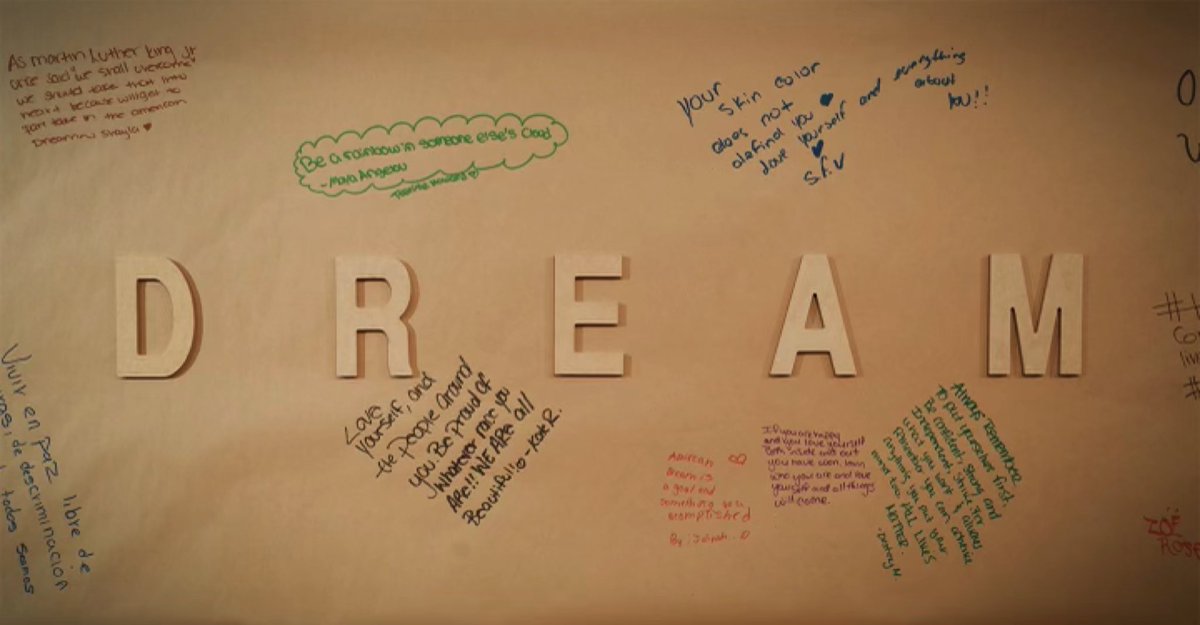 As martin Luther king jr
once said "we shall overcome"
we should take that into
heart because
take in the american
Dream
Be a rainbow in someone else's cloud
- Maya Angelou
your
skin color
does not
define you
love yourself and everything
about
you!!
S.F.V
D R E A M
Vivir en paz libre de
de descriminacion
todos somos
Love
yourself, and
the people around
you Be proud of
whatever race you
ARe!! WE ARe all
Beautiful!! - Kate R.
dream is
a goal and
something you
By:
If you are happy
and you love yourself
both inside and out
you have won, learn
who you are and love
yourself and all things
will come.
Always remember
to put yourself first.
Be confident, strong and
Independent,
you can achieve
anything you put your
mind too. ALL LIVES
MATTER.
#
#